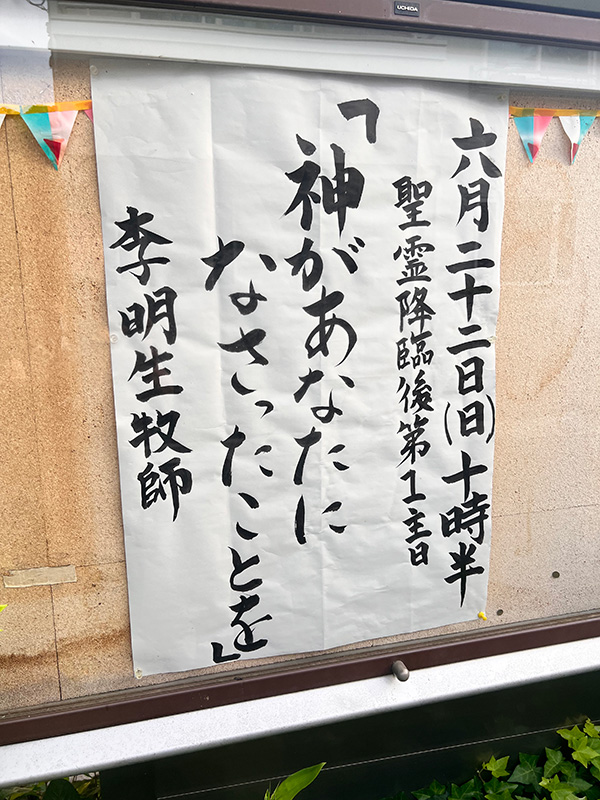 UCHIDA
六月二十二日(日)十時半
聖霊降臨後第1主日
「神があなたに
なさったことを」
李明生牧師